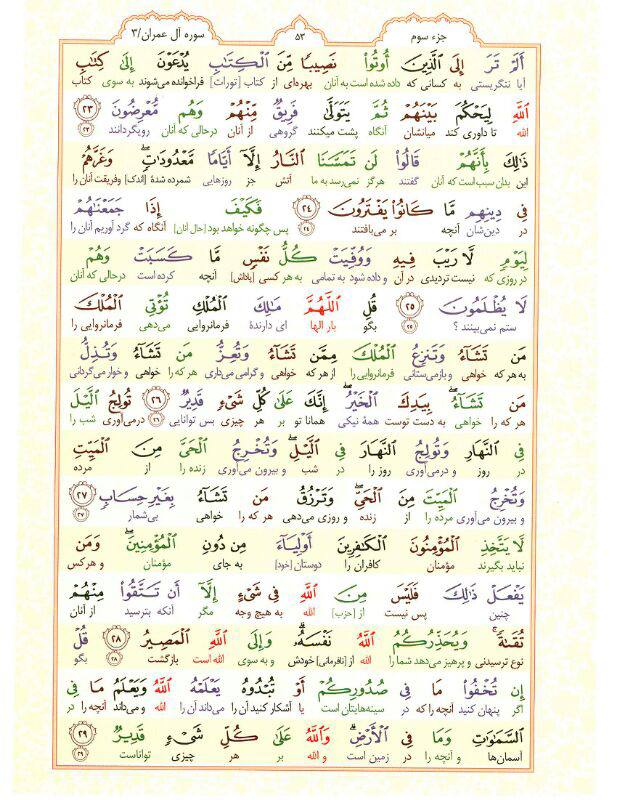 جزء سوم
۵۳
سوره آل عمران/۳
أَلَمْ تَرَ إِلَى الَّذِينَ أُوتُوا نَصِيبًا مِّنَ الْكِتَابِ يُدْعَوْنَ إِلَىٰ كِتَابِ
آیا ننگریستی به کسانی که داده شده است به آنان بهره‌ای از کتاب [تورات] فراخوانده می‌شوند به سوی کتاب
اللَّهِ لِيَحْكُمَ بَيْنَهُمْ ثُمَّ يَتَوَلَّىٰ فَرِيقٌ مِّنْهُمْ وَهُم مُّعْرِضُونَ ۲۳
الله تا داوری کند میانشان آنگاه پشت میکنند گروهی از آنان درحالی که آنان رویگردانند ۲۳
ذَٰلِكَ بِأَنَّهُمْ قَالُوا لَن تَمَسَّنَا النَّارُ إِلَّا أَيَّامًا مَّعْدُودَاتٍ وَغَرَّهُمْ
این بدان سبب است که آنان گفتند هرگز نمی‌رسد به ما آتش جز روزهایی شمرده شدهٔ [اندک] وفریفت آنان را
فِي دِينِهِم مَّا كَانُوا يَفْتَرُونَ ۲۴ فَكَيْفَ إِذَا جَمَعْنَاهُمْ
در دین‌شان آنچه بر می‌بافتند ۲۴ پس چگونه خواهد بود [حال آنان] آنگاه که گرد آوریم آنان را
لِيَوْمٍ لَّا رَيْبَ فِيهِ وَوُفِّيَتْ كُلُّ نَفْسٍ مَّا كَسَبَتْ وَهُمْ
در روزی که نیست تردیدی در آن و داده شود به تمامی به هر کسی [پاداش] آنچه کرده است درحالی که آنان
لَا يُظْلَمُونَ ۲۵ قُلِ اللَّهُمَّ مَالِكَ الْمُلْكِ تُؤْتِي الْمُلْكَ
ستم نمی‌بینند ؟ ۲۵ بگو بار الها ای دارندهٔ فرمانروایی می‌دهی فرمانروایی را
مَن تَشَاءُ وَتَنزِعُ الْمُلْكَ مِمَّن تَشَاءُ وَتُعِزُّ مَن تَشَاءُ وَتُذِلُّ
به هر که خواهی و بازمی‌ستانی فرمانروایی را از هر که خواهی و گرامی می‌داری هر که را خواهی و خوار می‌گردانی
مَن تَشَاءُ بِيَدِكَ الْخَيْرُ إِنَّكَ عَلَىٰ كُلِّ شَيْءٍ قَدِيرٌ ۲۶ تُولِجُ اللَّيْلَ
هر که را خواهی به دست توست همهٔ نیکی همانا تو بر هر چیزی بس توانایی ۲۶ درمی‌آوری شب را
فِي النَّهَارِ وَتُولِجُ النَّهَارَ فِي اللَّيْلِ وَتُخْرِجُ الْحَيَّ مِنَ الْمَيِّتِ
در روز و درمی‌آوری روز را در شب و بیرون می‌آوری زنده را از مرده
وَتُخْرِجُ الْمَيِّتَ مِنَ الْحَيِّ وَتَرْزُقُ مَن تَشَاءُ بِغَيْرِ حِسَابٍ ۲۷
و بیرون می‌آوری مرده را از زنده و روزی می‌دهی هر که را خواهی بی‌شمار ۲۷
لَّا يَتَّخِذِ الْمُؤْمِنُونَ الْكَافِرِينَ أَوْلِيَاءَ مِن دُونِ الْمُؤْمِنِينَ وَمَن
نباید بگیرند مؤمنان کافران را دوستان [خود] به جای مؤمنان و هرکس
يَفْعَلْ ذَٰلِكَ فَلَيْسَ مِنَ اللَّهِ فِي شَيْءٍ إِلَّا أَن تَتَّقُوا مِنْهُمْ
چنین پس نیست از [حزب] الله به هیچ وجه مگر آنکه بترسید از آنان
تُقَاةً وَيُحَذِّرُكُمُ اللَّهُ نَفْسَهُ وَإِلَى اللَّهِ الْمَصِيرُ ۲۸ قُلْ
نوع ترسیدنی و پرهیز می‌دهد شما را الله از [نافرمانی] خودش و به سوی الله است بازگشت ۲۸ بگو
إِن تُخْفُوا مَا فِي صُدُورِكُمْ أَوْ تُبْدُوهُ يَعْلَمْهُ اللَّهُ وَيَعْلَمُ مَا فِي
اگر پنهان کنید آنچه را که در سینه‌هایتان است یا آشکار کنید آن را می‌داند آن را الله و می‌داند آنچه را در
السَّمَاوَاتِ وَمَا فِي الْأَرْضِ وَاللَّهُ عَلَىٰ كُلِّ شَيْءٍ قَدِيرٌ ۲۹
آسمان‌ها و آنچه را در زمین است و الله بر هر چیزی تواناست ۲۹